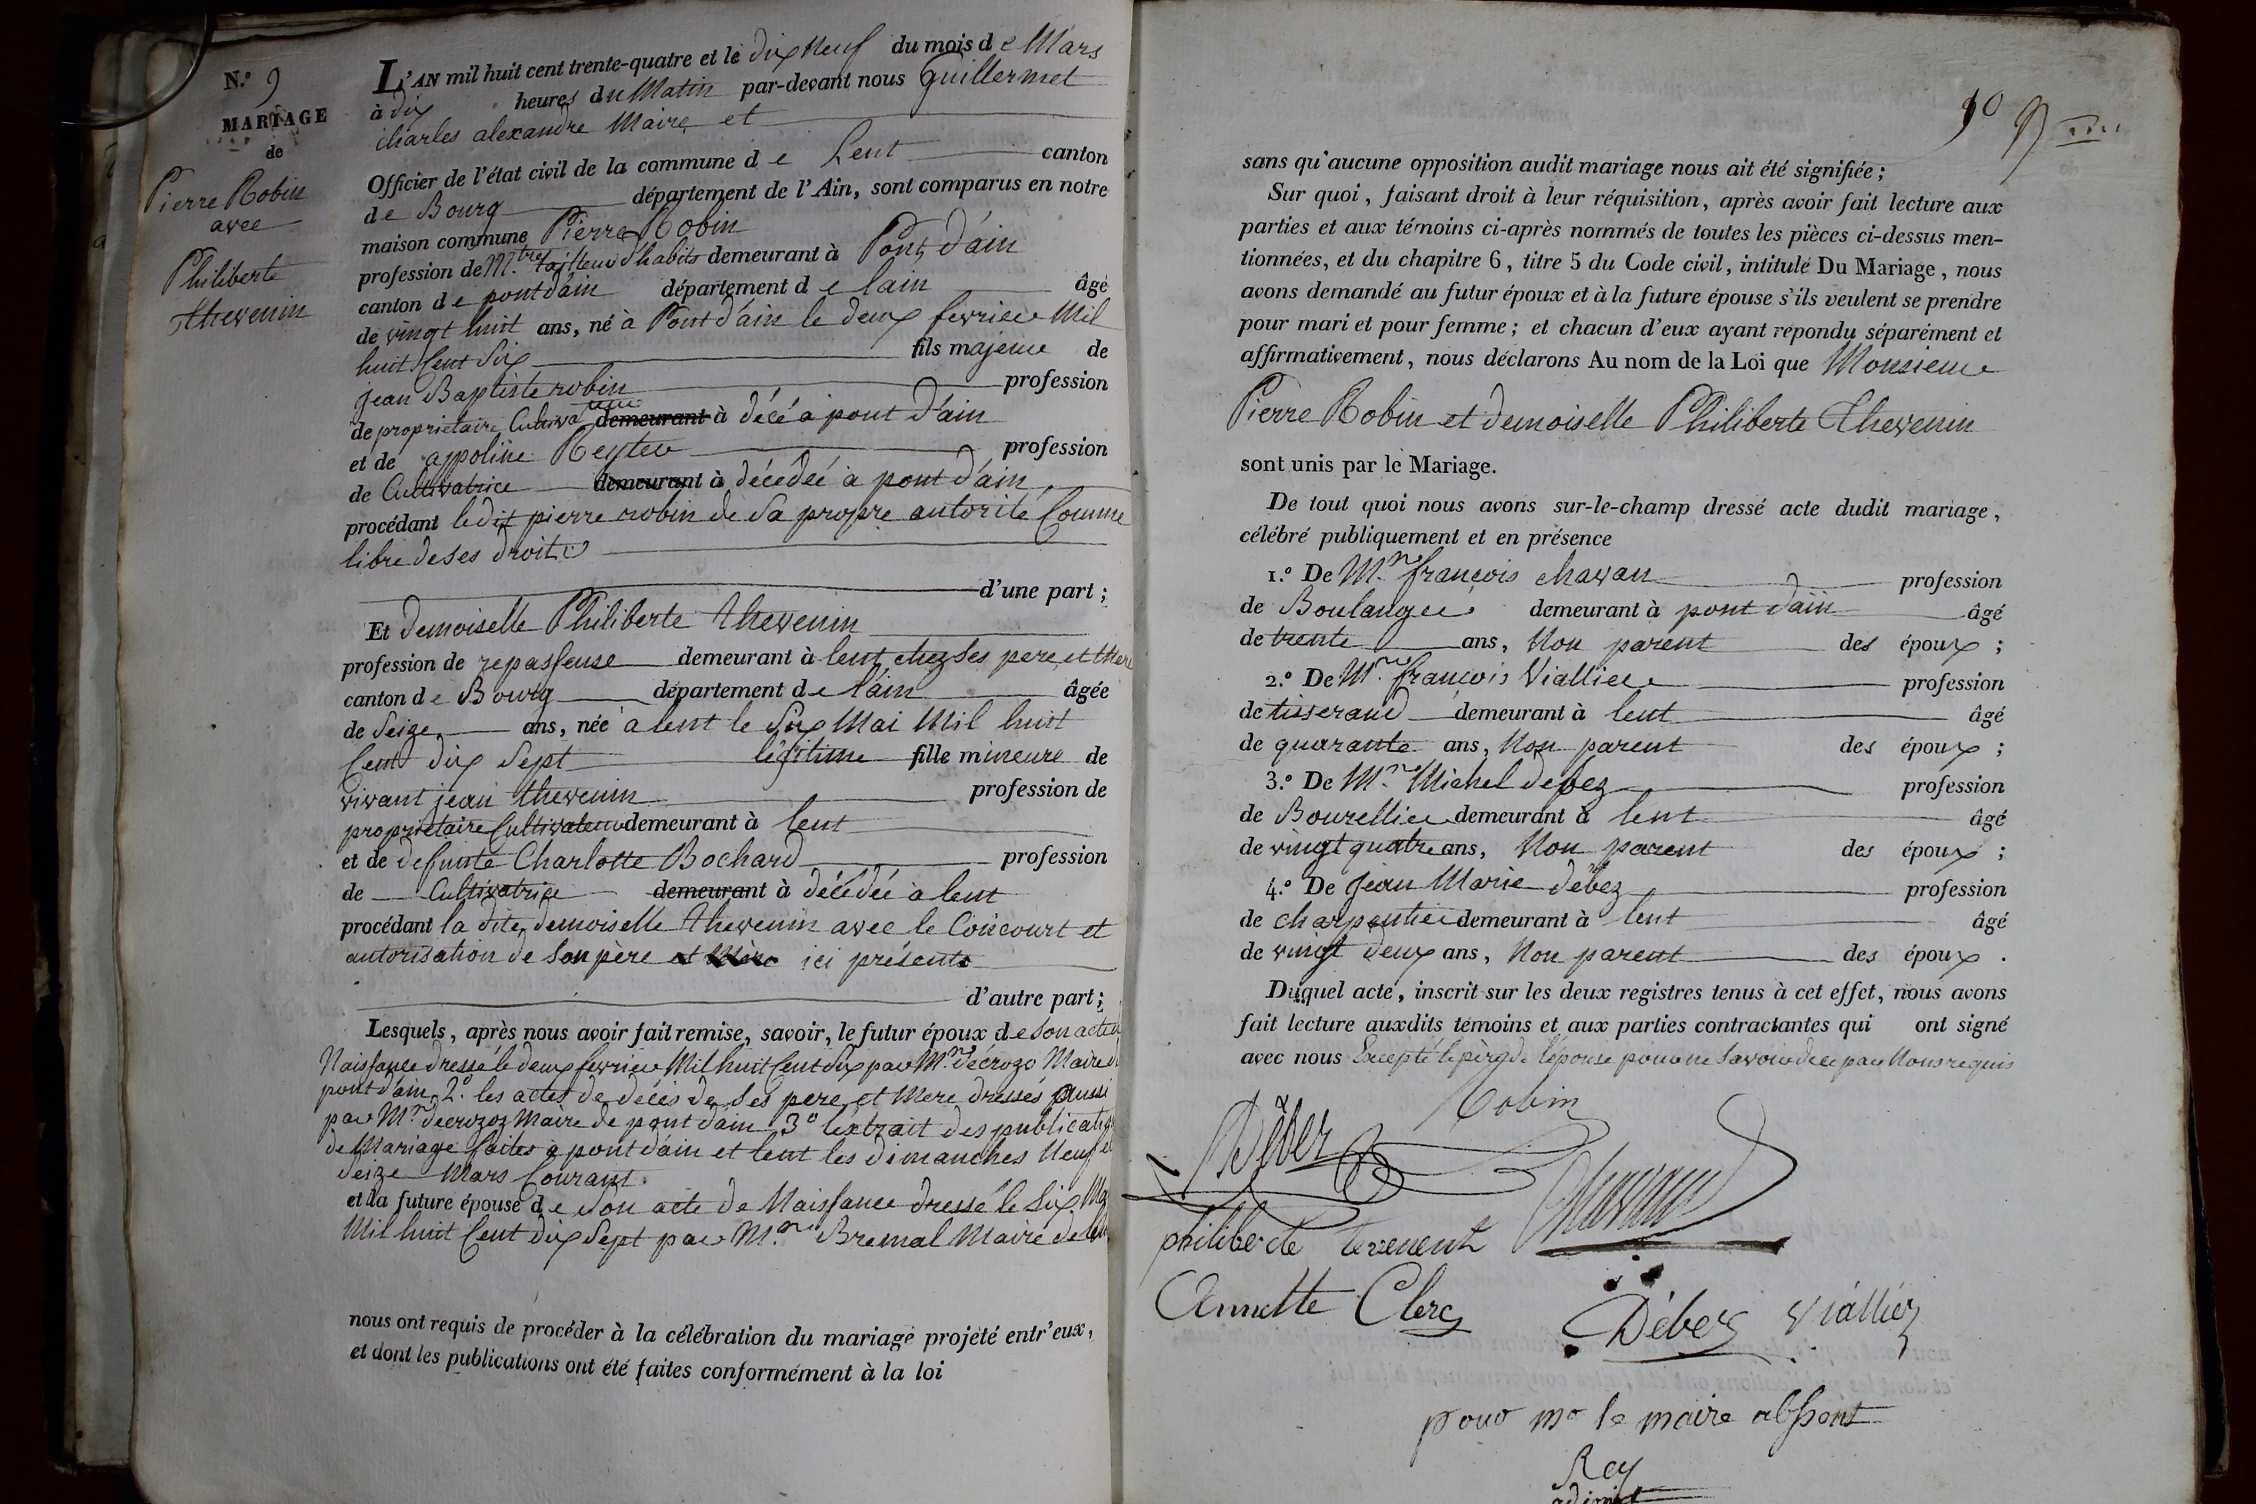 N.° 9
MARIAGE
de
Pierre Robin
avec
Philiberte
thevenin
L'AN mil huit cent trente-quatre et le dix Neuf du mois de Mars
à dix heures du Matin par-devant nous Guillermet
charles alexandre Maire et
Officier de l'état civil de la commune de Lent canton
de Bourg département de l'Ain, sont comparus en notre
maison commune Pierre Robin
profession de M.tre tailleur d'habits demeurant à Pont d'ain
canton de pont d'ain département de lain âgé
de vingt huit ans, né à Pont d'ain le deux fevrier Mil
huit Cent Six fils majeur de
jean Baptiste robin profession
de proprietaire Cultivateur demeurant à décé a pont d'ain
et de appoline Reyter profession
de Cultivatrice demeurant à décédée à pont d'ain
procédant ledit pierre robin de Sa propre autorité Comme
libre de ses droits
d'une part ;
Et demoiselle Philiberte thevenin
profession de repasseuse demeurant à lent chez Ses pere et Mere
canton de Bourg département de lain âgée
de Seize ans, née à lent le Six Mai Mil huit
Cent dix Sept légitime fille mineure de
vivant jean thevenin profession de
proprietaire Cultivateur demeurant à lent
et de defunte Charlotte Bochard profession
de Cultivatrice demeurant à décédée à lent
procédant la dite demoiselle thevenin avec le Concourt et
autorisation de Son père et Mère ici présents
d'autre part ;
Lesquels, après nous avoir fait remise, savoir, le futur époux de son acte de
Naissance dressé le deux fevrier Mil huit Cent Six par M.r decrozo Maire de
pont d'ain 2.° les actes de décès de Ses pere et Mere dressés aussi
par M.r decrozoz Maire de pont d'ain 3.° l'extrait des publications
de Mariage faites a pont d'ain et lent les dimanches Neuf et
Seize Mars Courant.
et la future épouse de Son acte de Naissance dressé le Six Mai
Mil huit Cent dix Sept par M.r Bremal Maire de lent
nous ont requis de procéder à la célébration du mariage projeté entr'eux,
et dont les publications ont été faites conformément à la loi
sans qu'aucune opposition audit mariage nous ait été signifiée ;
Sur quoi, faisant droit à leur réquisition, après avoir fait lecture aux
parties et aux témoins ci-après nommés de toutes les pièces ci-dessus men-
tionnées, et du chapitre 6, titre 5 du Code civil, intitulé Du Mariage, nous
avons demandé au futur époux et à la future épouse s'ils veulent se prendre
pour mari et pour femme ; et chacun d'eux ayant répondu séparément et
affirmativement, nous déclarons Au nom de la Loi que Monsieur
Pierre Robin et demoiselle Philiberte thevenin
sont unis par le Mariage.
De tout quoi nous avons sur-le-champ dressé acte dudit mariage,
célébré publiquement et en présence
1.° De M.r françois chavan profession
de Boulanger demeurant à pont d'ain âgé
de trente ans, Non parent des époux ;
2.° De M.r françois Viallier profession
de tisserand demeurant à lent âgé
de quarante ans, Non parent des époux ;
3.° De M.r Michel debez profession
de Bourellier demeurant à lent âgé
de vingt quatre ans, Non parent des époux ;
4.° De jean Marie debez profession
de charpentier demeurant à lent âgé
de vingt deux ans, Non parent des époux .
Duquel acte, inscrit sur les deux registres tenus à cet effet, nous avons
fait lecture auxdits témoins et aux parties contractantes qui ont signé
avec nous Excepté le père de l'épouse pour ne Savoir de ce par Nous requis
Robin
Débez
Chavan
philiberte tevenent
Annette Clerc
Débez Viallier
pour mr le maire absent
Rey
adjoint